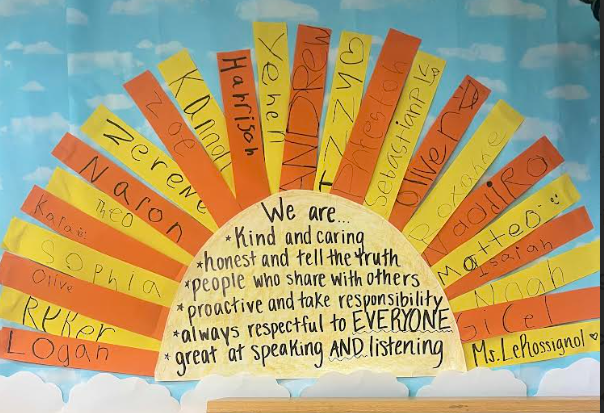 LOGAN
REKER
Olive
SOPHIA
Theo
Naron
Zerene
Zoe
Kanna
Harrison
Yehen
ANDREW
IZZY
SebastianP
OliverA
Roxanne
Matteo
Isaiah
Noah
Ms. LeRossignol
We are...
*Kind and caring
*honest and tell the truth
*people who share with others
*proactive and take responsibility
*always respectful to EVERYONE
*great at speaking AND listening